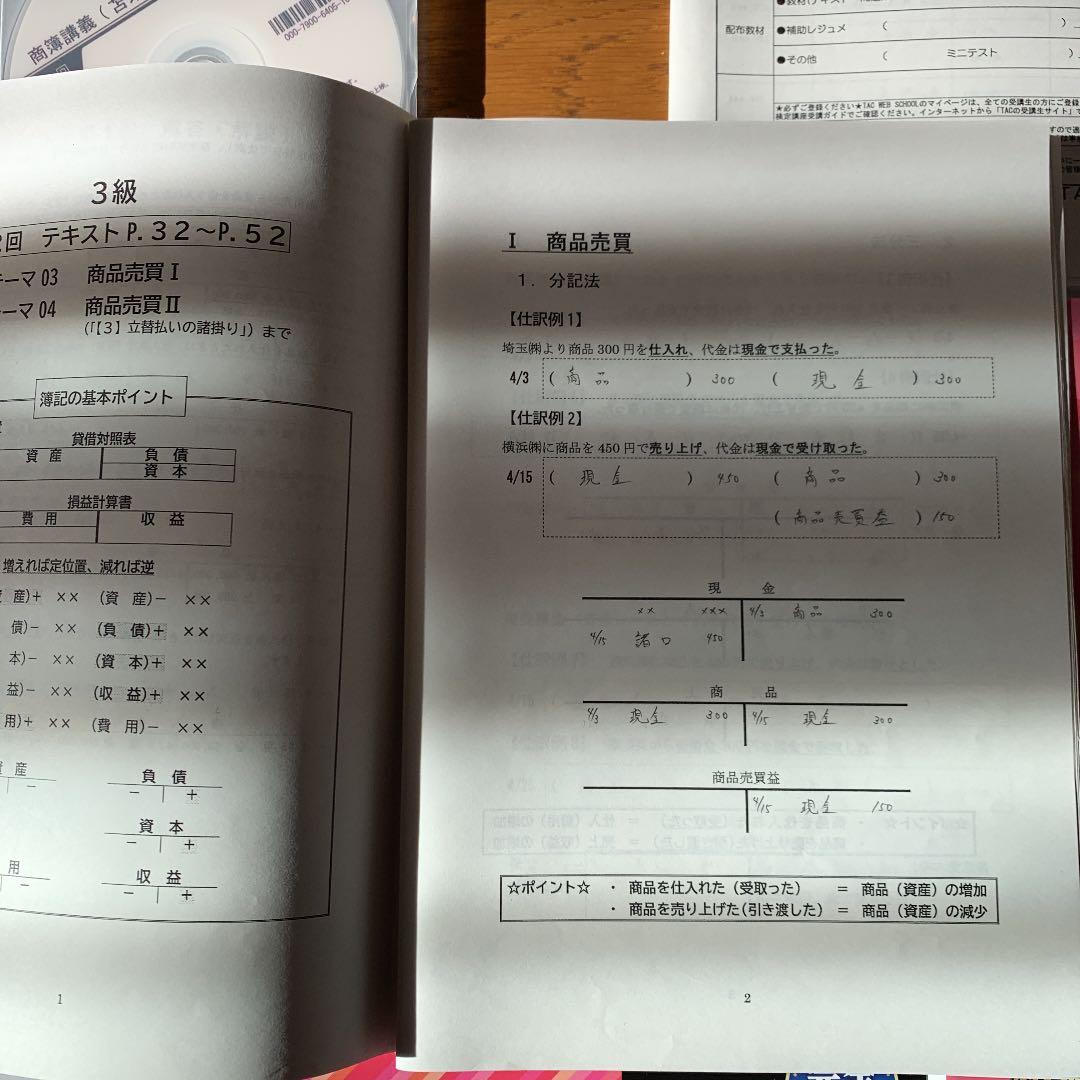 商簿講義(苫
000-7900-6405-10
配布教材
●補助レジュメ ( )
●その他 ( ミニテスト )
★必ずご登録ください★TAC WEB SCHOOLのマイページは、全ての受講生の方にご登録
検定講座受講ガイドでご確認ください。インターネットから「TACの受講生サイト」で
3級
回 テキストP.32~P.52
ーマ03 商品売買Ⅰ
ーマ04 商品売買Ⅱ
(「【3】立替払いの諸掛り」)まで
簿記の基本ポイント
貸借対照表
資産 負債
資本
損益計算書
費用 収益
増えれば定位置、減れば逆
産)+ ×× (資 産)- ××
債)- ×× (負 債)+ ××
本)- ×× (資 本)+ ××
益)- ×× (収 益)+ ××
用)+ ×× (費 用)- ××
産 負 債
- - +
資 本
- +
用 収 益
- - +
1
Ⅰ 商品売買
1.分記法
【仕訳例1】
埼玉㈱より商品300円を仕入れ、代金は現金で支払った。
4/3 ( 商品 ) 300 ( 現金 ) 300
【仕訳例2】
横浜㈱に商品を450円で売り上げ、代金は現金で受け取った。
4/15 ( 現金 ) 450 ( 商品 ) 300
( 商品売買益 ) 150
現 金
×× ××× 4/3 商品 300
4/15 諸口 450
商 品
4/3 現金 300 4/15 現金 300
商品売買益
4/15 現金 150
☆ポイント☆ ・ 商品を仕入れた(受取った) = 商品(資産)の増加
・ 商品を売り上げた(引き渡した) = 商品(資産)の減少
2